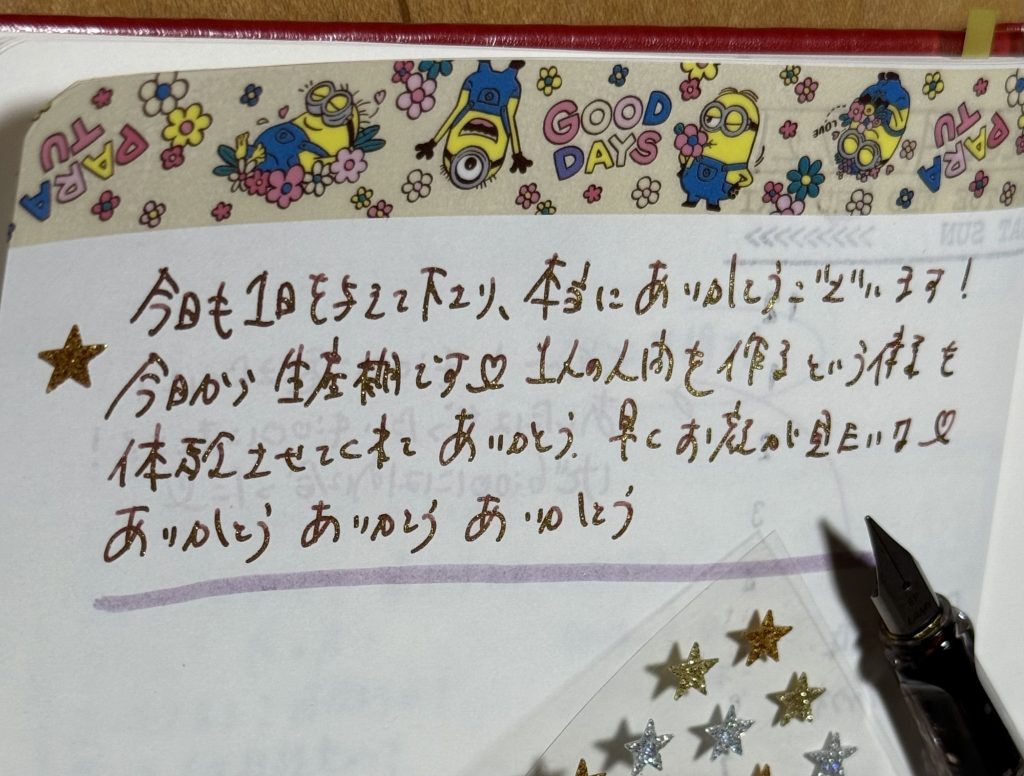 PARA TU
GOOD
DAYS
LOVE
PARA TU
今日も1日を与えて下さり、本当にありがとうございます!
今日から生産期です♡ 1人の人間を作るという
体験させてくれて ありがとう. 早くお顔が見たいな♡
ありがとう ありがとう ありがとう
LAMY